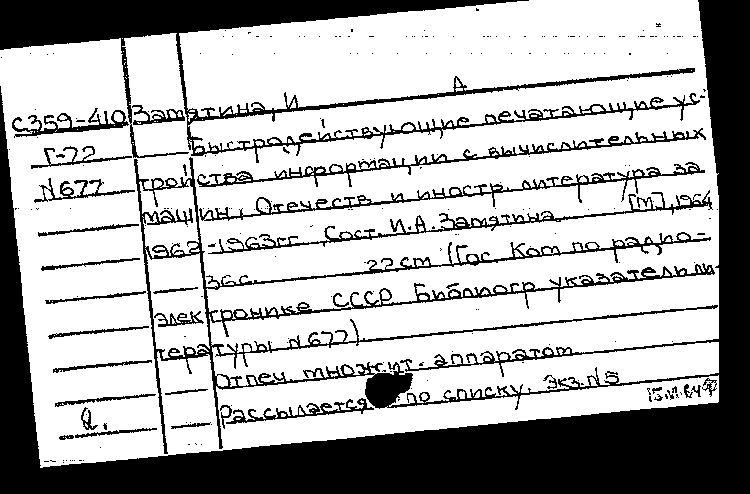 С359-410 Замятина, И А
Г-72 Быстродействующие печатающие ус-
N677 тройства информации с вычислительных
машин. Отечеств и иностр. литература за
1962-1963гг Сост. И.А.Замятина [М],1964
36с. 22cm (Гос Ком по радио-
электронике СССР Библиогр указатель ли-
тературы N677).
Отпеч. множит. аппаратом
Рассылается по списку. Экз.N5
2. 15.VI.64